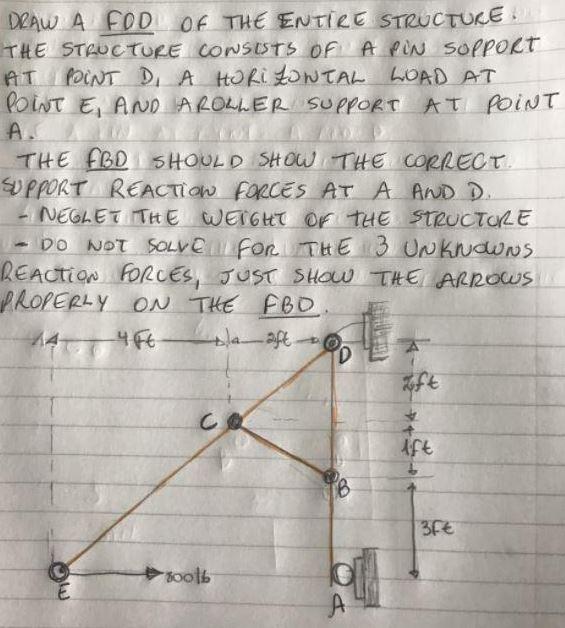 DRAW A FOD OF THE ENTIRE STRUCTURE.
THE STRUCTURE CONSISTS OF A PIN SOPPORT
AT POINT D, A HORIZONTAL LOAD AT
POINT E, AND AROLLER SUPPORT AT POINT
A.
THE FBD SHOULD SHOW THE CORRECT.
SUPPORT REACTION FORCES AT A AND D.
- NEGLET THE WEIGHT OF THE STRUCTORE
- DO NOT SOLVE FOR THE 3 UNKNOWNS
REACTION FORCES, JUST SHOW THE ARROWS
PROPERLY ON THE FBD.
4ft 2ft
D
2ft
C
1ft
B
3ft
800lb
E
A